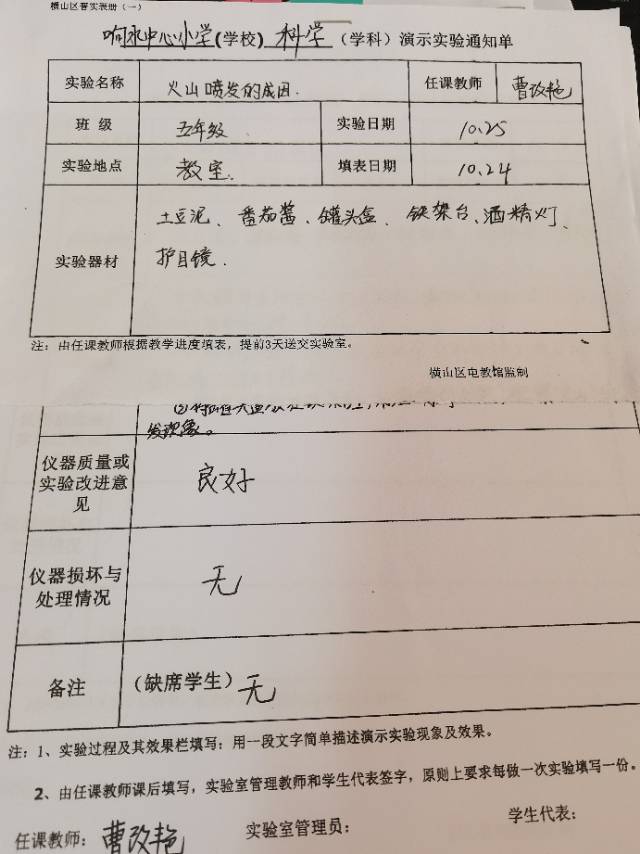 横山区普实表册（一）
响水中心小学(学校) 科学（学科）演示实验通知单
实验名称 火山喷发的成因. 任课教师 曹改艳
班 级 五年级 实验日期 10.25
实验地点 教室. 填表日期 10.24
土豆泥、番茄酱、罐头盒、铁架台、酒精灯、
实验器材 护目镜.
注：由任课教师根据教学进度填表，提前3天送交实验室。
横山区电教馆监制
发现象。
仪器质量或
实验改进意
见
良好
仪器损坏与
处理情况
无
备注 （缺席学生）无
注：1、实验过程及其效果栏填写：用一段文字简单描述演示实验现象及效果。
2、由任课教师课后填写，实验室管理教师和学生代表签字，原则上要求每做一次实验填写一份。
任课教师：曹改艳 实验室管理员： 学生代表：